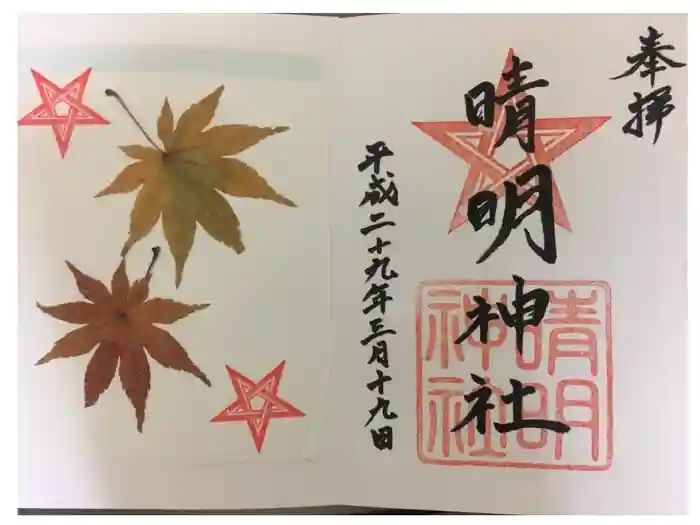 奉拝
晴明神社
晴明
神社
平成二十九年三月十九日